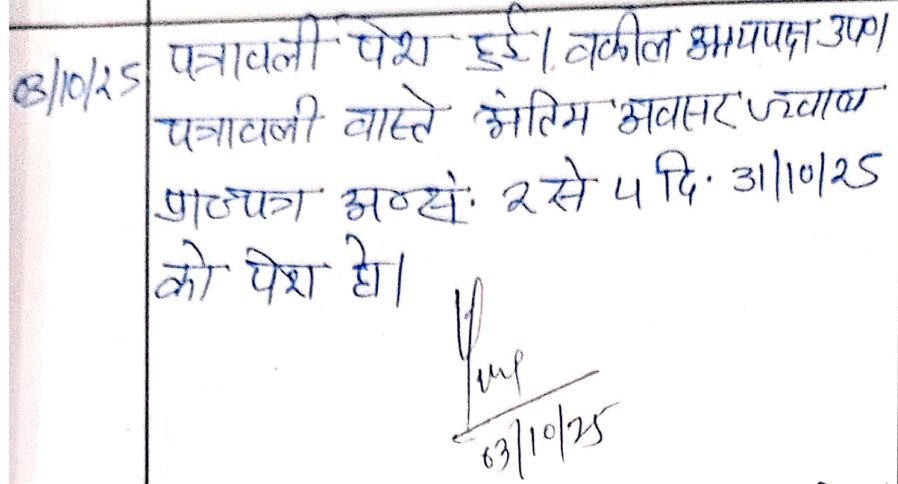 03/10/25 पत्रावली पेश हुई। वकील उभयपक्ष उप०।
पत्रावली वास्ते अंतिम अवसर जवाब
प्रा०पत्र अ०सं. 2 से 4 दि. 31/10/25
को पेश हो।
03/10/25